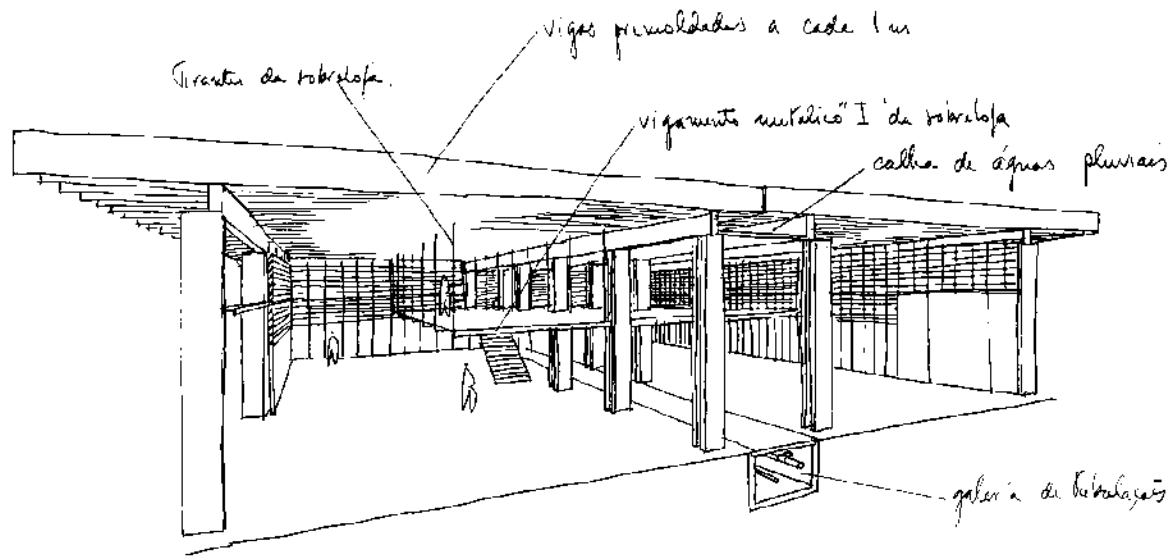 vigas premoldadas a cada 1 m
Tirantes da sobreloja.
vigamento metálico "I" da sobreloja
calha de águas pluviais
galeria de tubulações